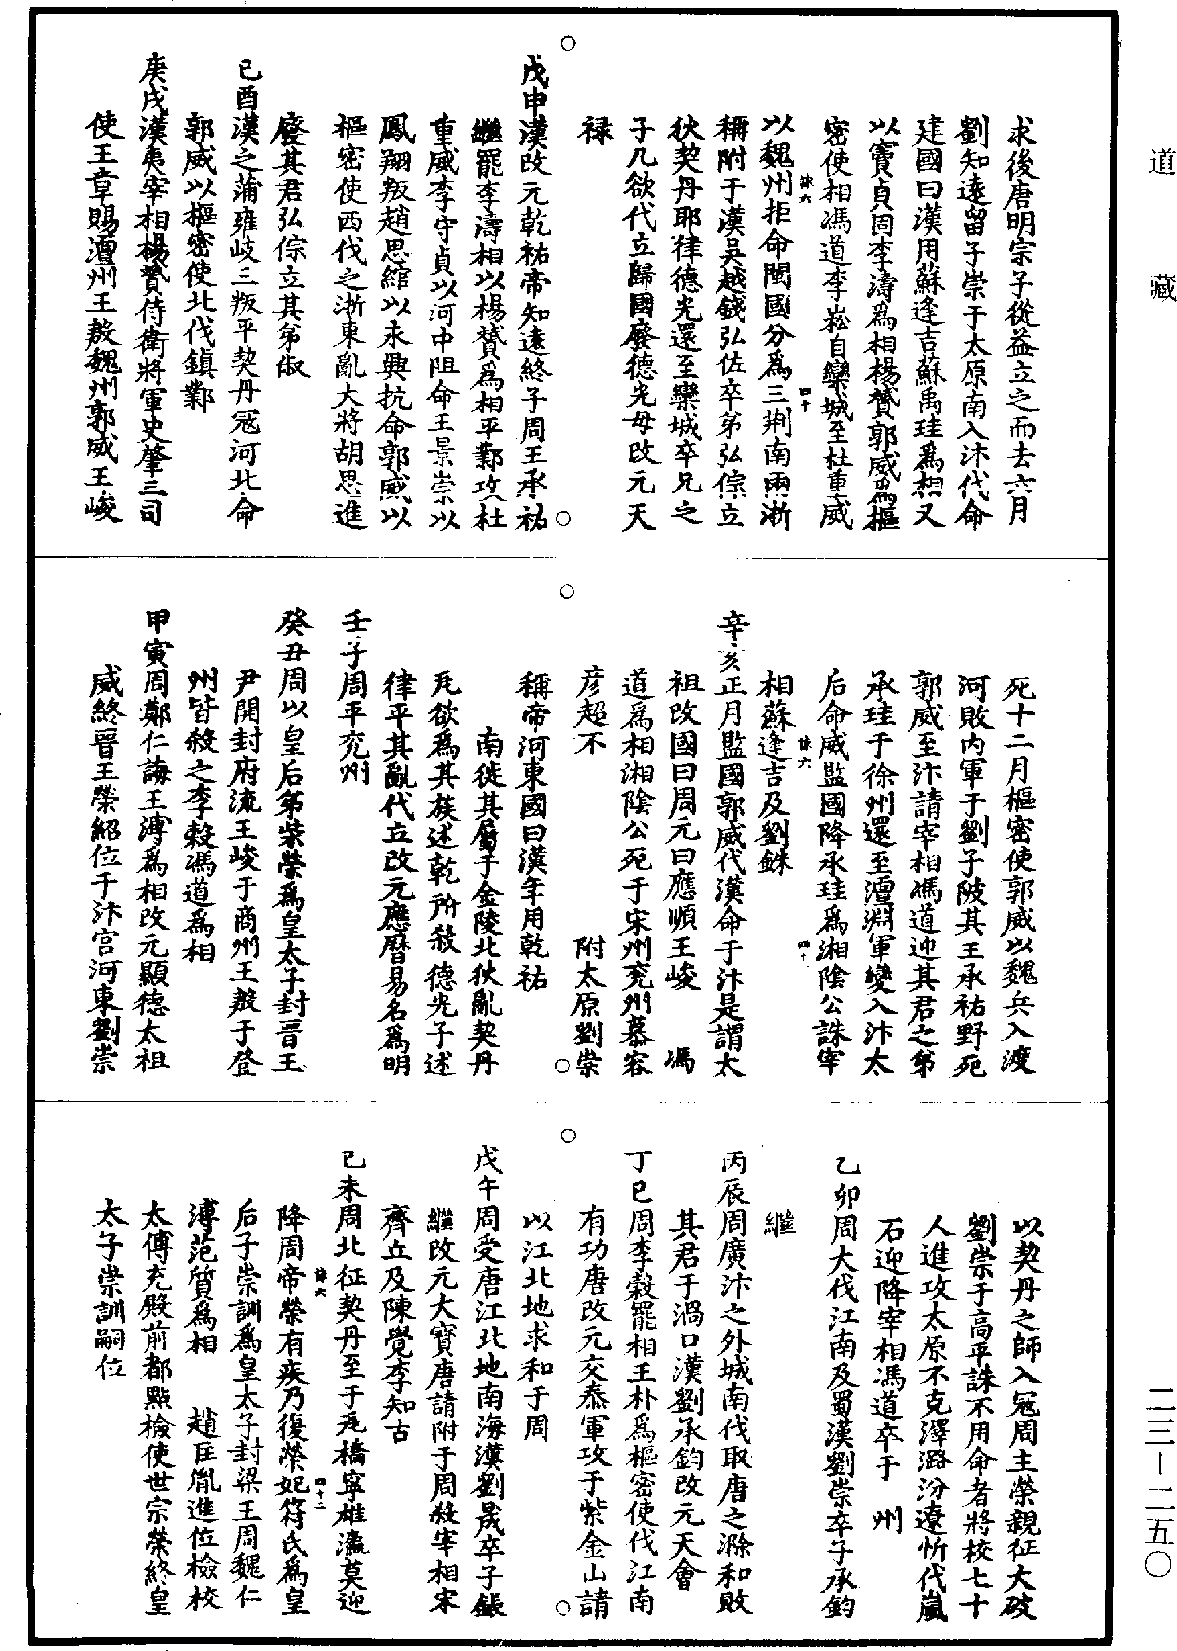 道藏
求後唐明宗子從益立之而去六月
劉知遠留子崇于太原南入汴代命
建國曰漢用蘇逢吉蘇禹珪爲相又
以竇貞固李濤爲相楊贇郭威爲樞
密使相馮道李崧自欒城至杜重威
以魏州拒命閩國分爲三荆南兩浙
稱附于漢吳越錢弘佐卒弟弘倧立
狄契丹耶律德光還至欒城卒兄之
子兀欲代立歸國廢德光母改元天
禄
戊申漢改元乾祐帝知遠終子周王承祐
繼罷李濤相以楊贇爲相平鄴攻杜
重威李守貞以河中阻命王景崇以
鳳翔叛趙思綰以永興抗命郭威以
樞密使西伐之浙東亂大將胡思進
廢其君弘倧立其弟俶
己酉漢之蒲雍岐三叛平契丹寇河北命
郭威以樞密使北伐鎮鄴
庚戌漢夷宰相楊贇侍衛將軍史肇三司
使王章賜澶州王殷魏州郭威王峻
死十二月樞密使郭威以魏兵入渡
河敗内軍于劉子陂其王承祐野死
郭威至汴請宰相馮道迎其君之弟
承珪于徐州還至澶淵軍變入汴太
后命威監國降承珪爲湘陰公誅宰
相蘇逢吉及劉銖
辛亥正月監國郭威代漢命于汴是謂太
祖改國曰周元曰應順王峻　馮
道爲相湘陰公死于宋州兖州慕容
彦超不　附太原劉崇
稱帝河東國曰漢年用乾祐
南徙其屬于金陵北狄亂契丹
兀欲爲其族述乾所殺德光子述
律平其亂代立改元應曆易名爲明
壬子周平兖州
癸丑周以皇后弟柴榮爲皇太子封晉王
尹開封府流王峻于商州王殷于登
州皆殺之李穀馮道爲相
甲寅周鄭仁誨王溥爲相改元顯德太祖
威終晉王榮紹位于汴宫河東劉崇
以契丹之師入寇周主榮親征大破
劉崇于高平誅不用命者將校七十
人進攻太原不克澤潞汾遼忻代嵐
石迎降宰相馮道卒于　州
乙卯周大伐江南及蜀漢劉崇卒子承鈞
繼
丙辰周廣汴之外城南伐取唐之滁和敗
其君于渦口漢劉承鈞改元天會
丁巳周李穀罷相王朴爲樞密使伐江南
有功唐改元交泰軍攻于紫金山請
以江北地求和于周
戊午周受唐江北地南海漢劉晟卒子鋹
繼改元大寳唐請附于周殺宰相宋
齊丘及陳覺李知古
己未周北征契丹至于瓦橋寧雄瀛莫迎
降周帝榮有疾乃復榮妃符氏爲皇
后子崇訓爲皇太子封梁王周魏仁
溥范質爲相　趙匡胤進位檢校
太傅充殿前都點檢使世宗榮終皇
太子崇訓嗣位
二三—二五〇